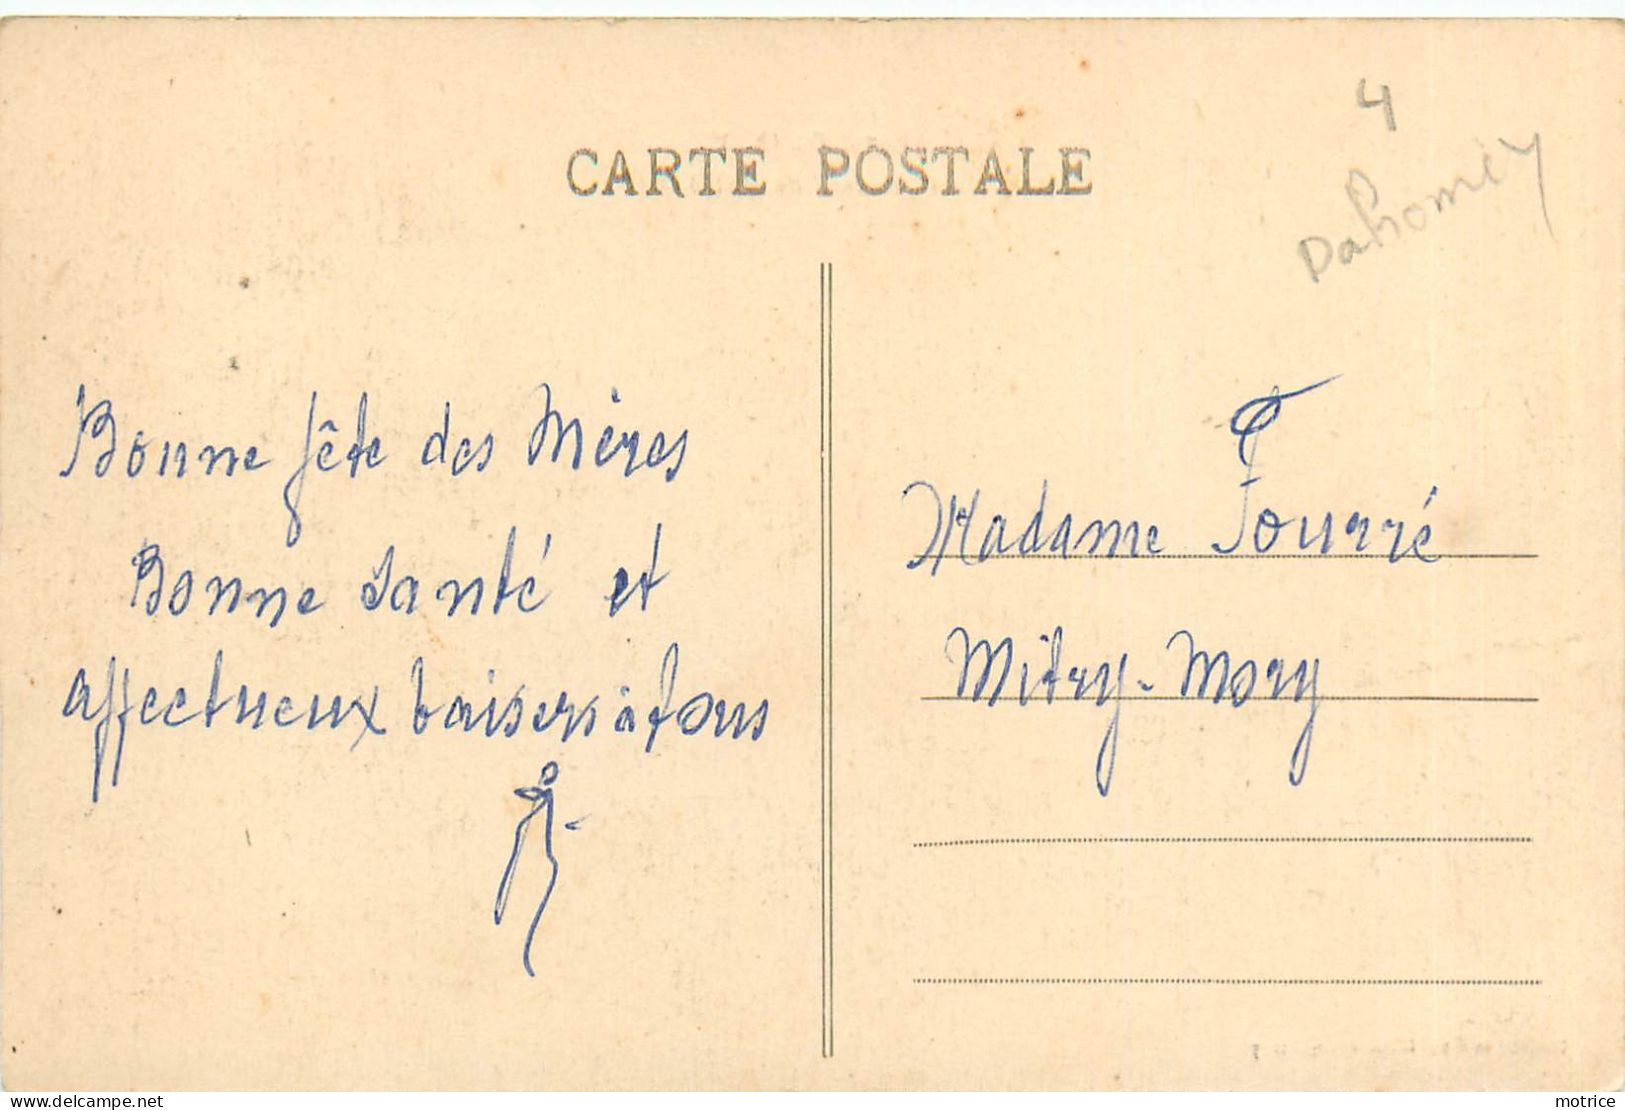 4
Dahomey
CARTE POSTALE
Bonne fête des Mères
Bonne santé et
affectueux baisers à tous
Madame Fourré
Mitry-Mory
www.delcampe.net
motrice